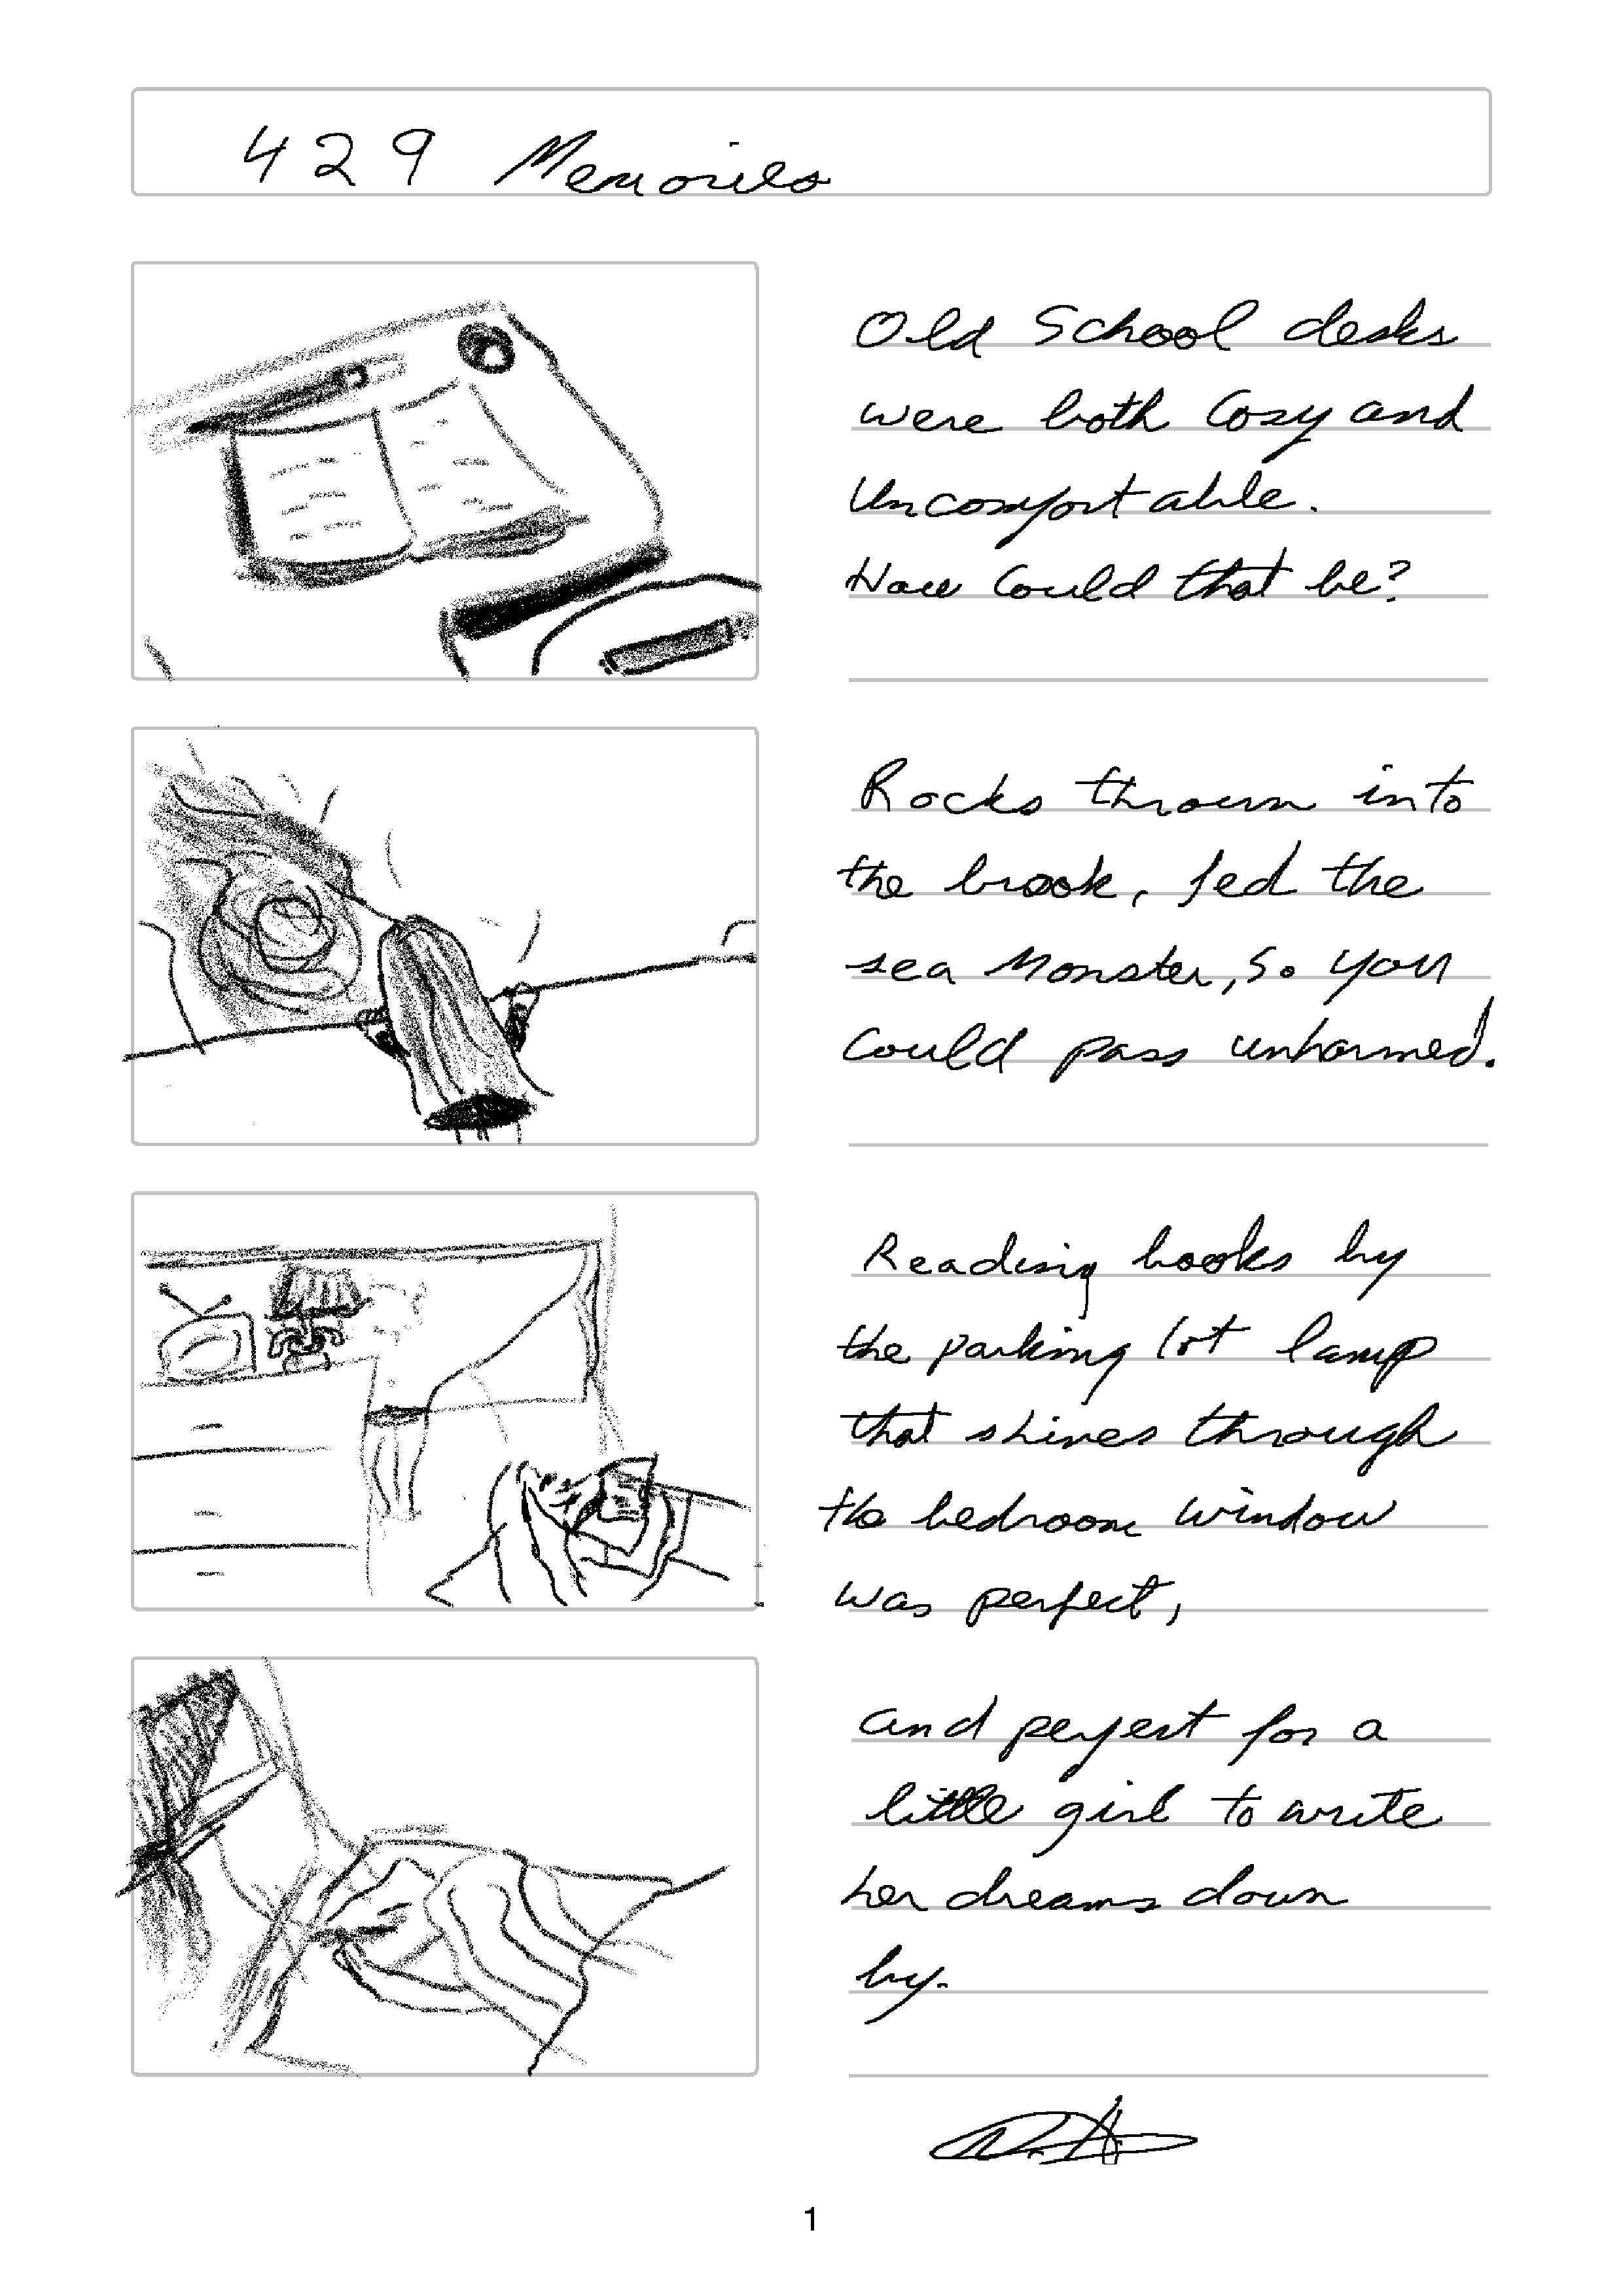 429 Memories
Old School desks
were both Cozy and
Uncomfortable.
How Could that be?
Rocks thrown into
the brook, fed the
sea Monster, So you
Could pass unharmed.
Reading books by
the parking lot lamp
that shines through
the bedroom window
was perfect,
and perfect for a
little girl to write
her dreams down
by.
1